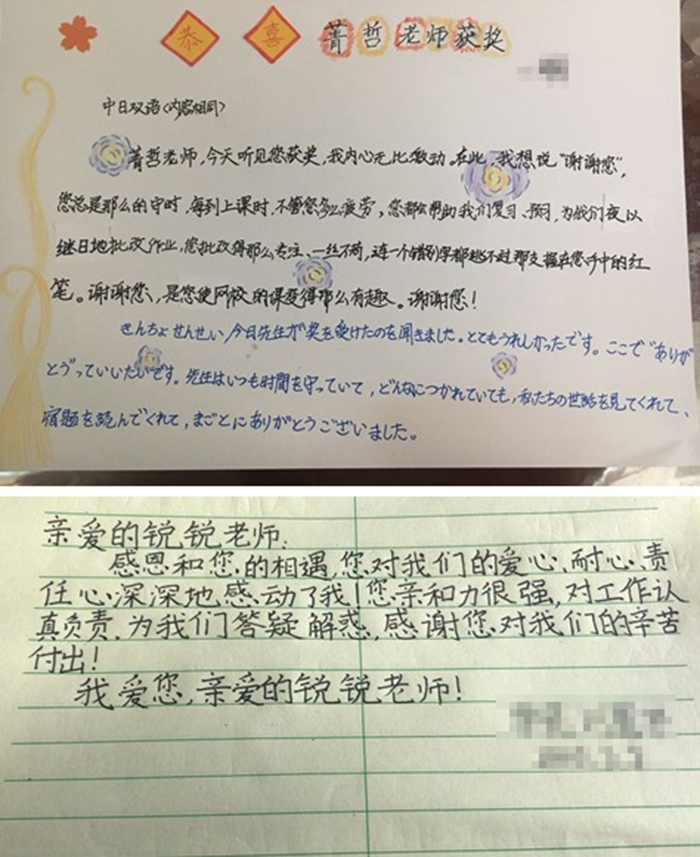 恭喜菁哲老师获奖
中日双语(内容相同)
菁哲老师,今天听见您获奖,我内心无比激动。在此,我想说"谢谢您",
您总是那么的守时,每到上课时,不管您多么疲劳,您都会帮助我们复习、预习,为我们夜以
继日地批改作业,您批改得那么专注、一丝不苟,连一个错别字都逃不过那支握在您手中的红
笔。谢谢您,是您使网校的课变得那么有趣。谢谢您!
きんちょせんせい,今日先任が奖を受けたのを聞きました。とてもうれしかったです。ここで"ありが
とう"っていいたいです。先任はいつも時間を守っていて,どんなにつかれていても,私たちの世話を見てくれて、
宿題を読んでくれて,まごとにありがとうございました。
亲爱的锐锐老师:
感恩和您的相遇,您对我们的爱心、耐心、责
任心深深地感动了我!您亲和力很强,对工作认
真负责,为我们答疑解惑,感谢您对我们的辛苦
付出!
我爱您,亲爱的锐锐老师!